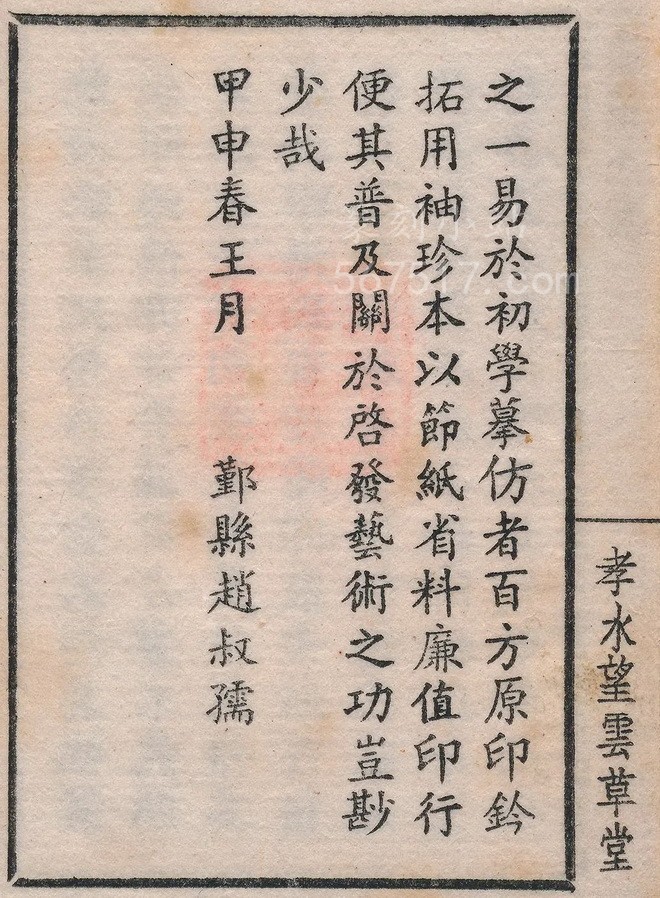 之一易於初學摹仿者百方原印鈐
拓用袖珍本以節紙省料廉值印行
便其普及關於啓發藝術之功豈尠
少哉
甲申春王月 鄞縣趙叔孺
孝水望雲草堂